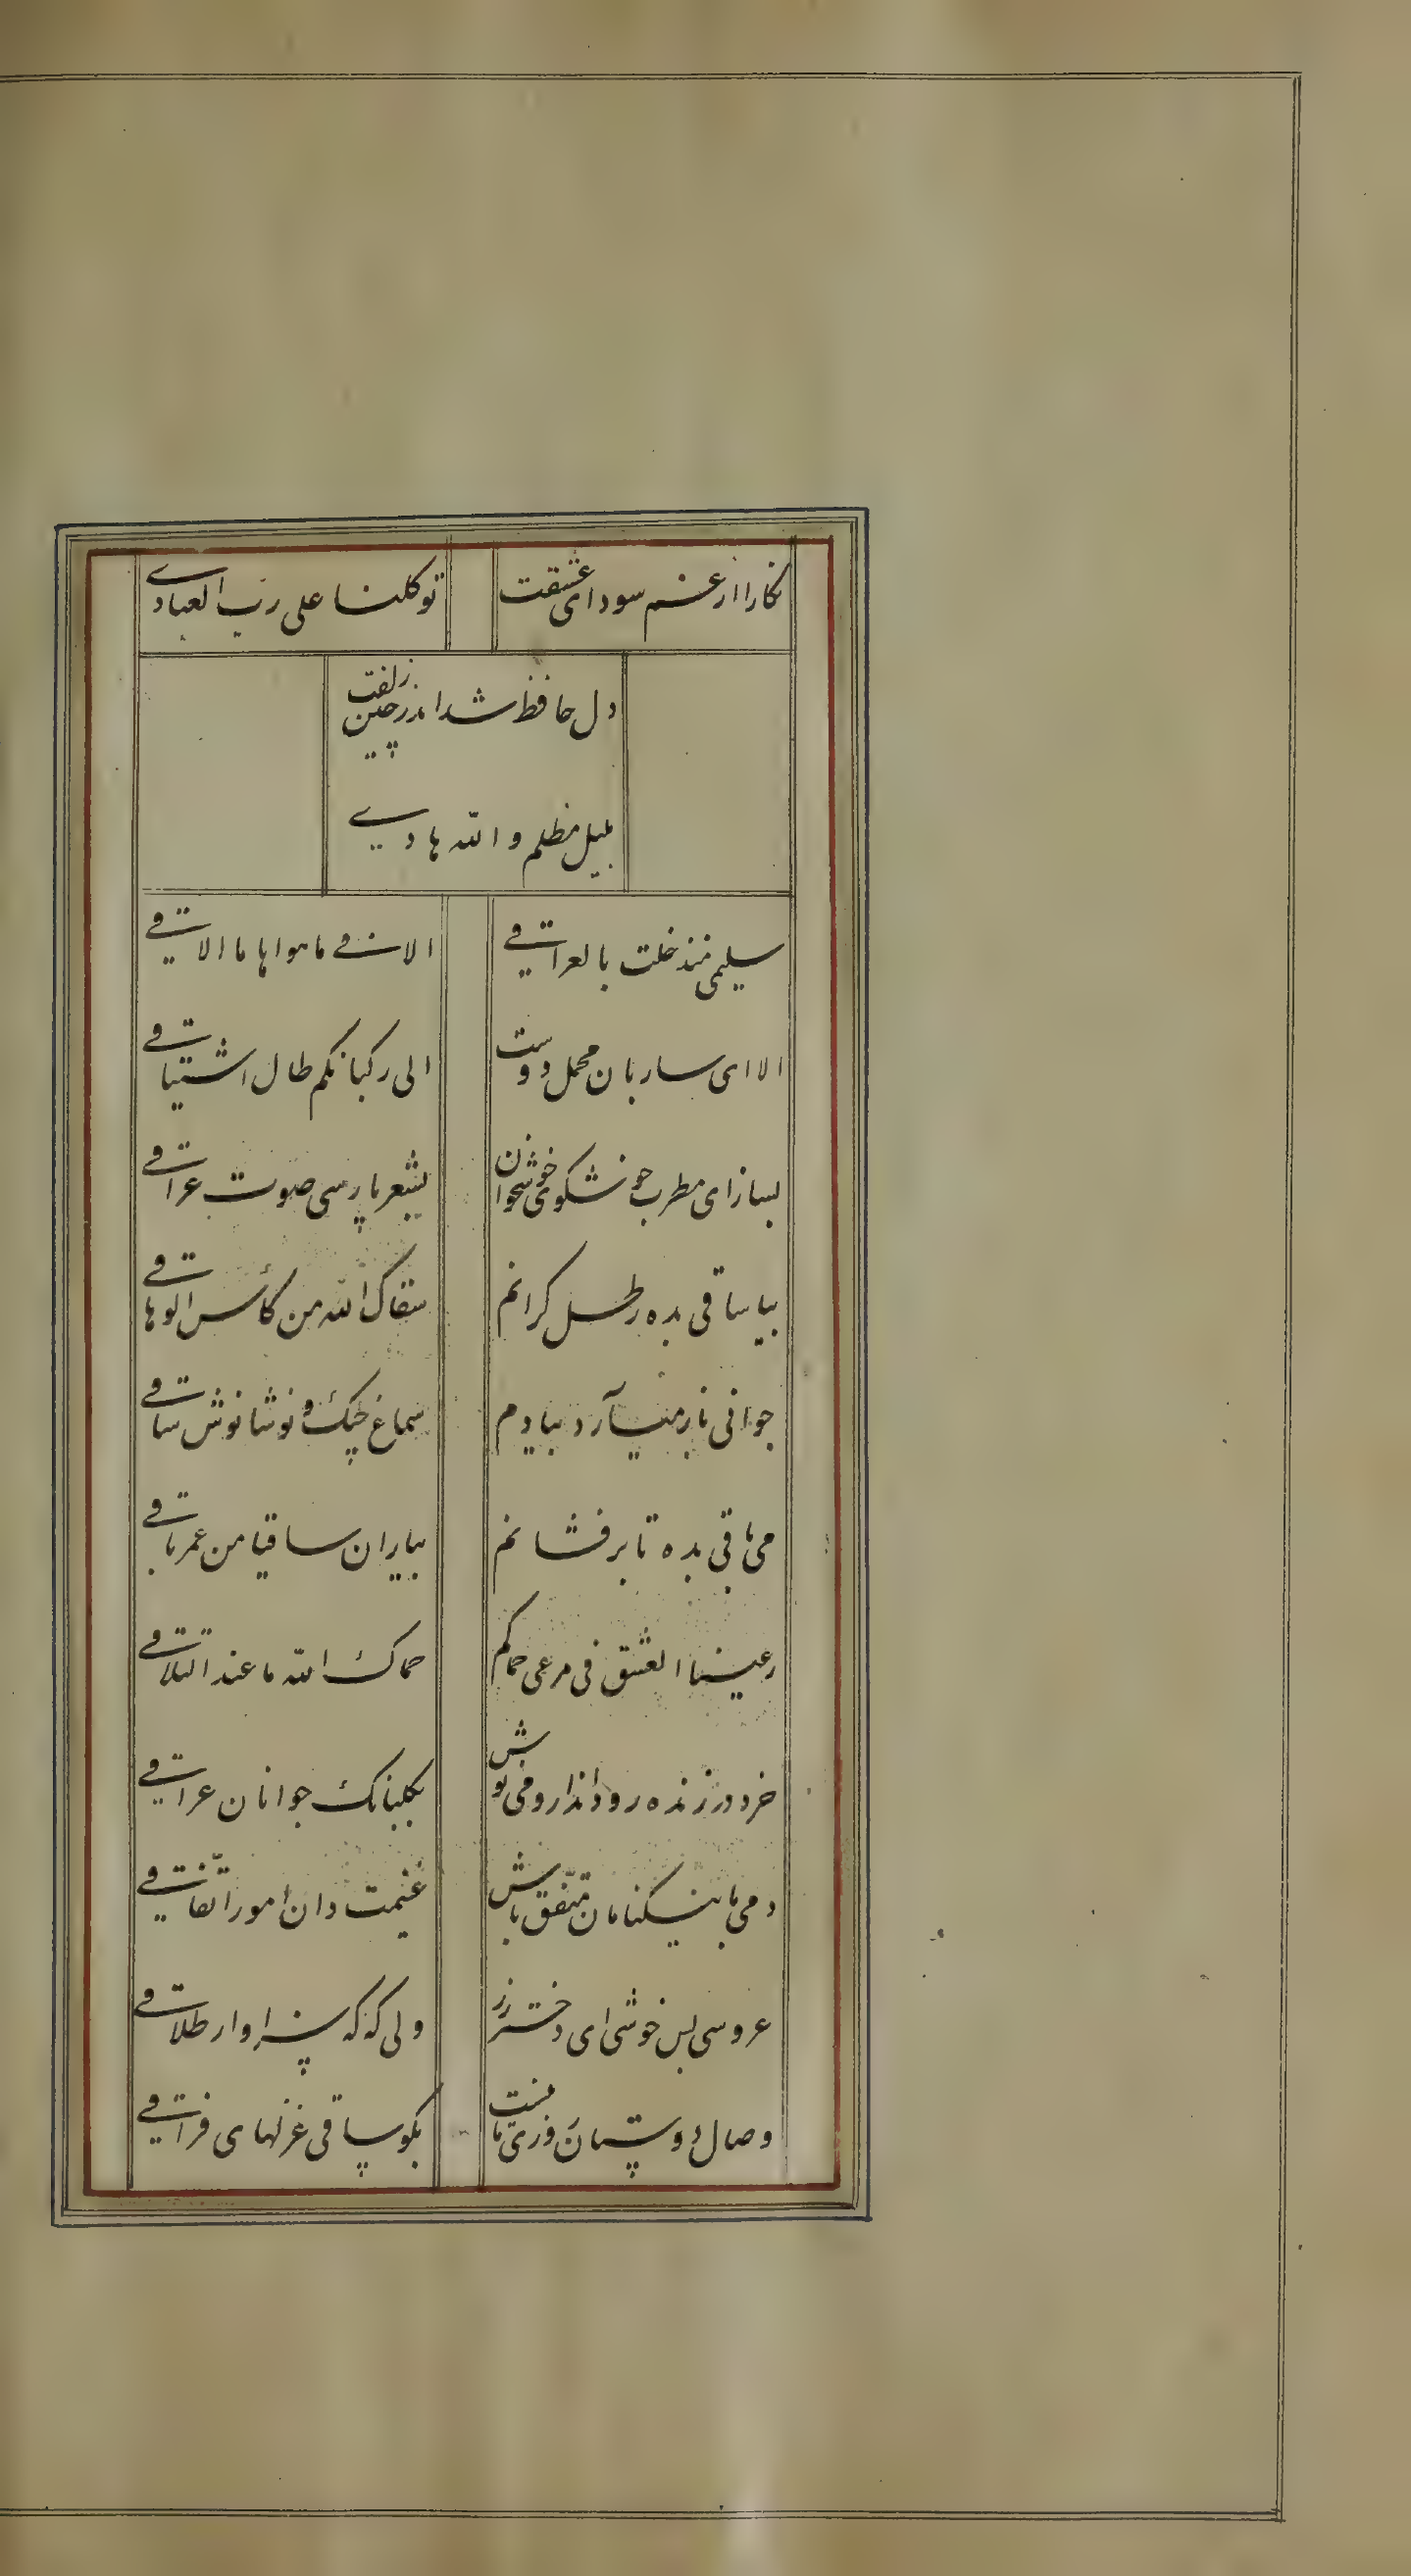 نکارا از غم سودای عشقت توکلنا علی رب العبادی
دل حافظ شد اندر چین زلفت
بلیل مظلم و الله هادی
سلیمی منذ حلت بالعراقی الاقی ما هواها ما الاقی
الا ای ساربان محمل دوست الی رکبانکم طال اشتیاقی
بساز ای مطرب خوشکوی خوشخوان بشعر پارسی صوت عراقی
بیا ساقی بده رطل کرانم سقاک الله من کأس الوهاقی
جوانی باز میآرد بیادم سماع چنک و نوشانوش ساقی
می باقی بده تا برفشانم بیاران ساقیا من عمر باقی
رعینا العشق فی مرعی حماکم حماک الله ما عند التلاقی
خرد در زنده رود انداز و می نوش بکلبانک جوانان عراقی
دمی با نیکنامان متفق باش غنیمت دان امور اتفاقی
عروسی بس خوشی ای دختر رز ولی که که سزاوار طلاقی
وصال دوستان روزی ما نیست بکو ساقی غزلهای فراقی